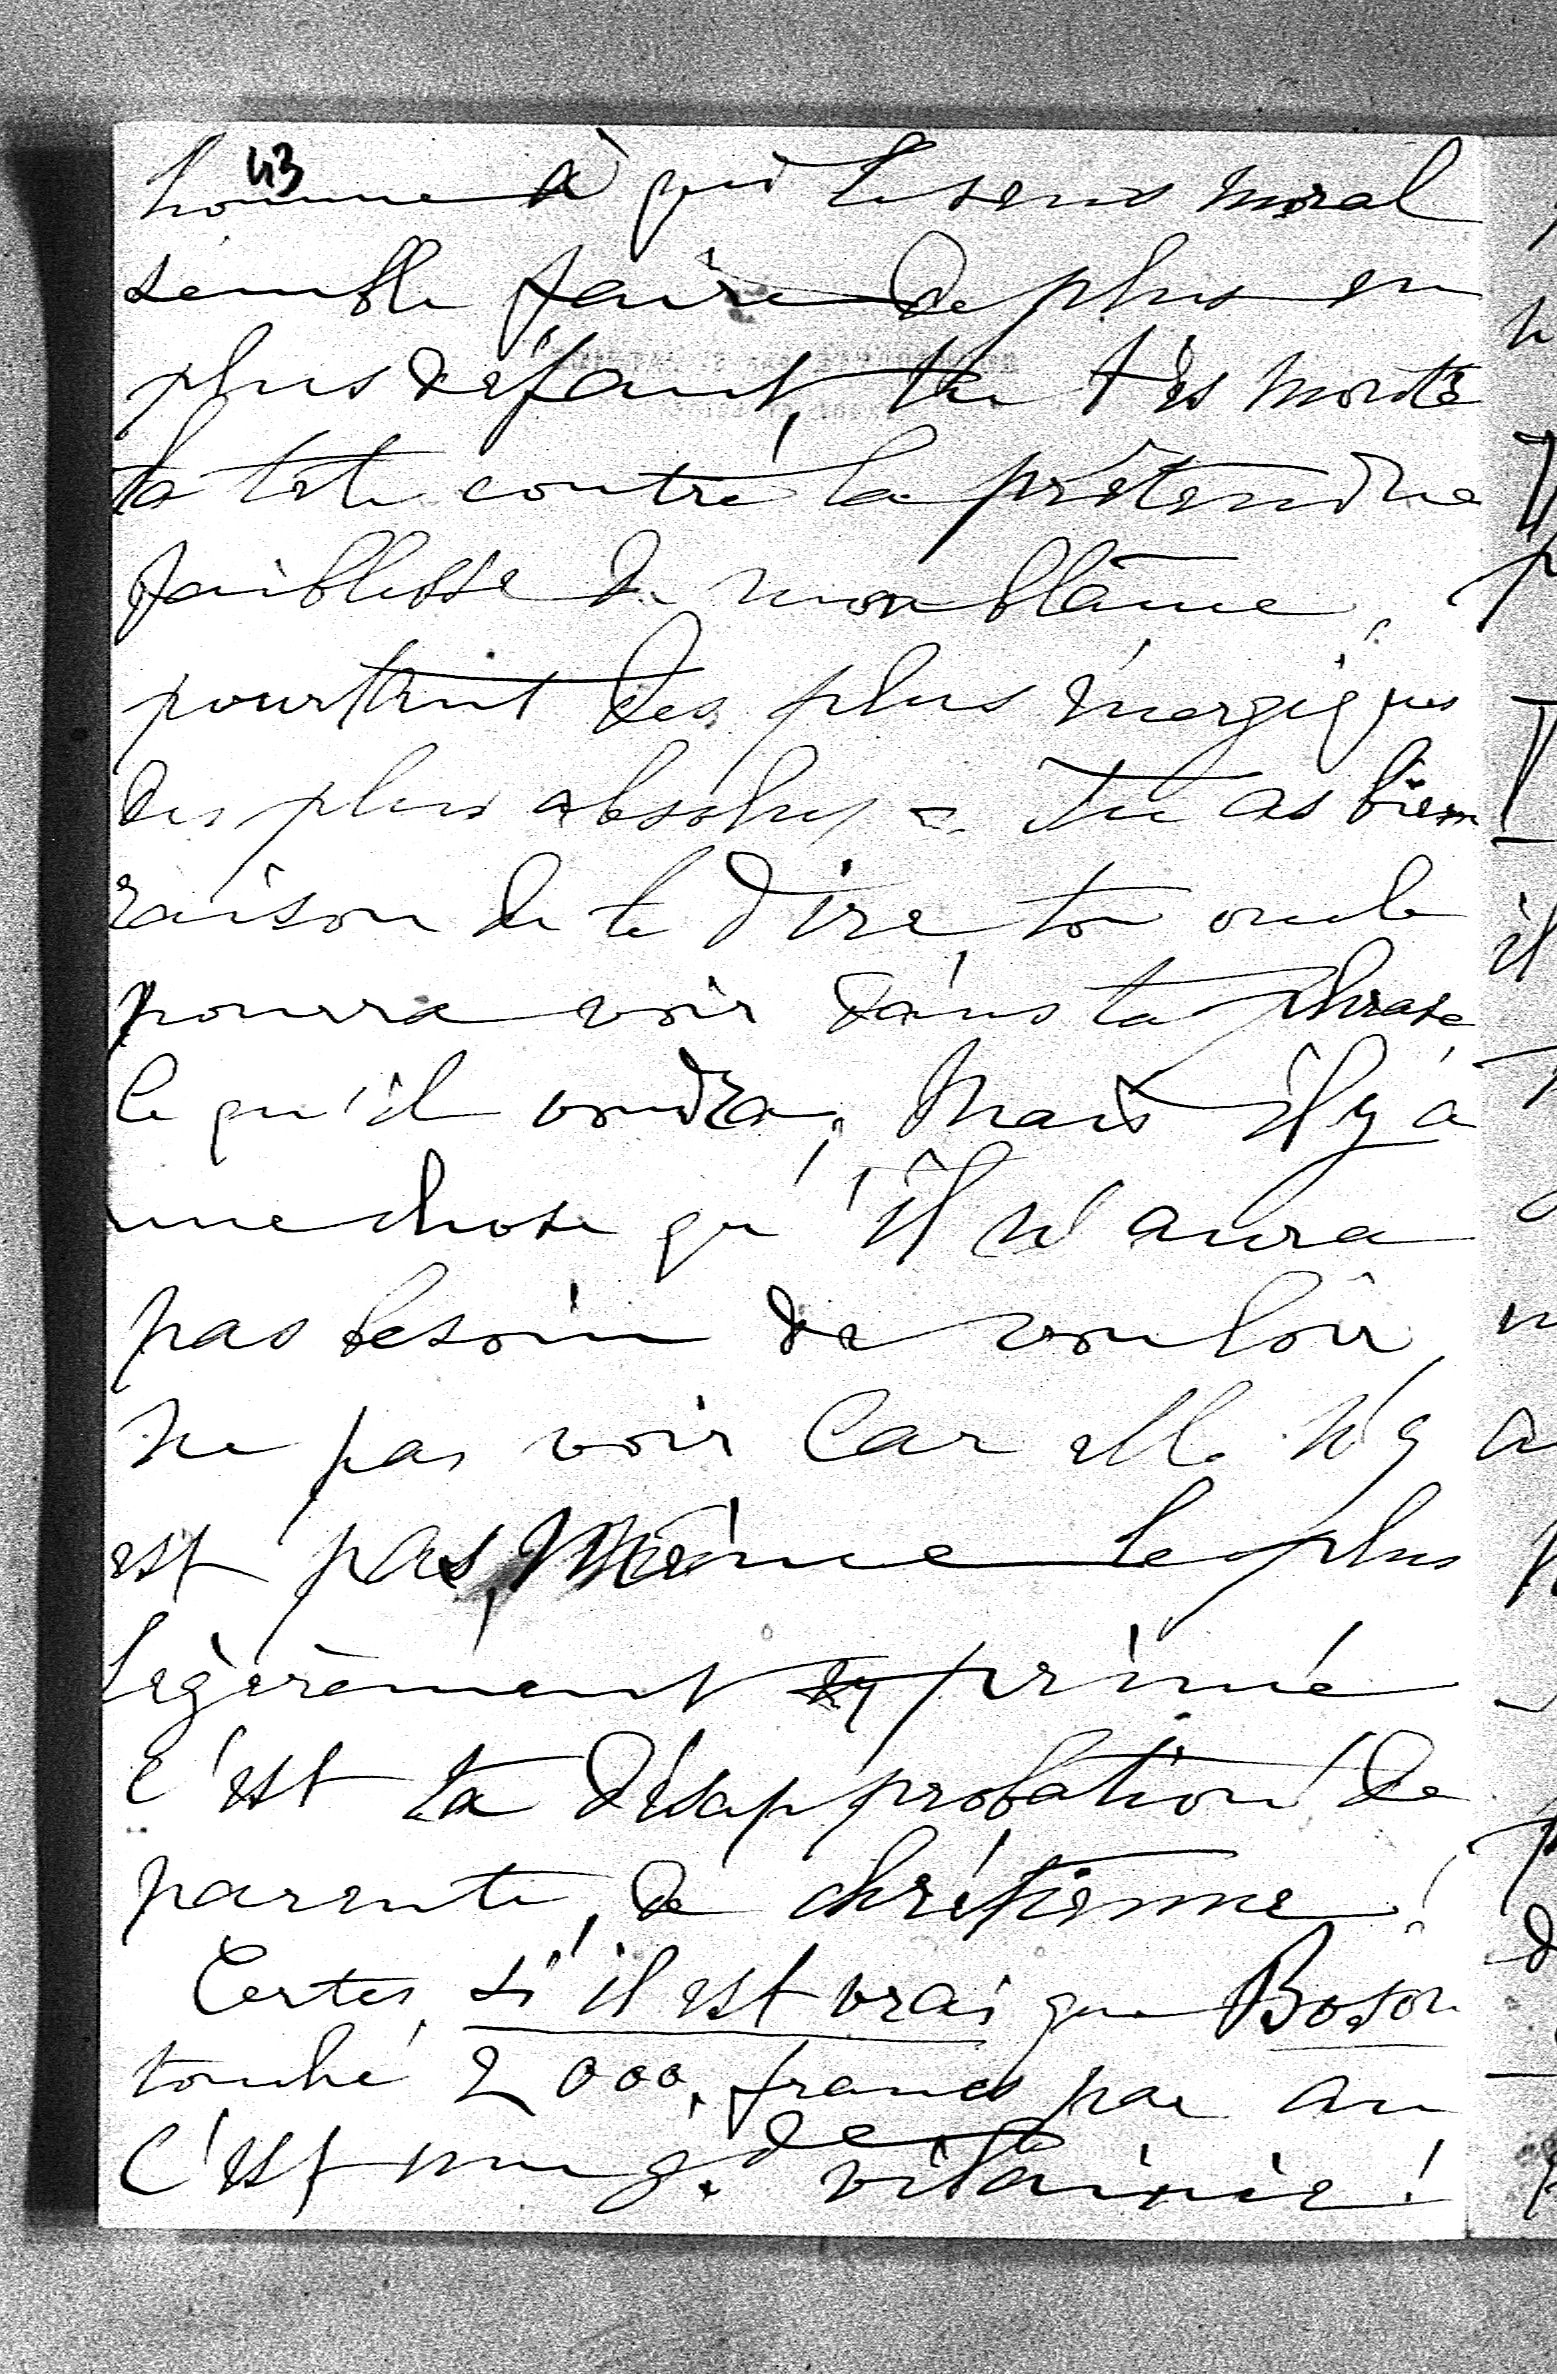 43
homme à qui le sens moral
semble faire de plus en
plus défaut, tu t'es monté
la tête contre la prétendue
faiblesse de mon blâme,
pourtant des plus énergiques
des plus absolus =. Tu as bien
raison de te dire, ton oncle
pourra voir dans ta phrase
ce qu'il voudra; Mais il y a
une chose qu'il n'aura
pas besoin de vouloir,
ne pas voir Car elle n'y
est pas, Même le plus
légèrement exprimé
c'est ta désapprobation de
parente, de chrétienne!
Certes, si il est vrai que Boson
touche 2000, francs par an
C'est une gde vilainie!